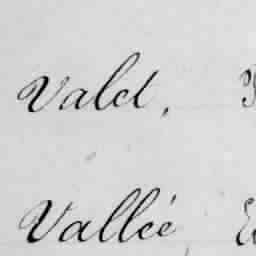 Valet,
Vallée